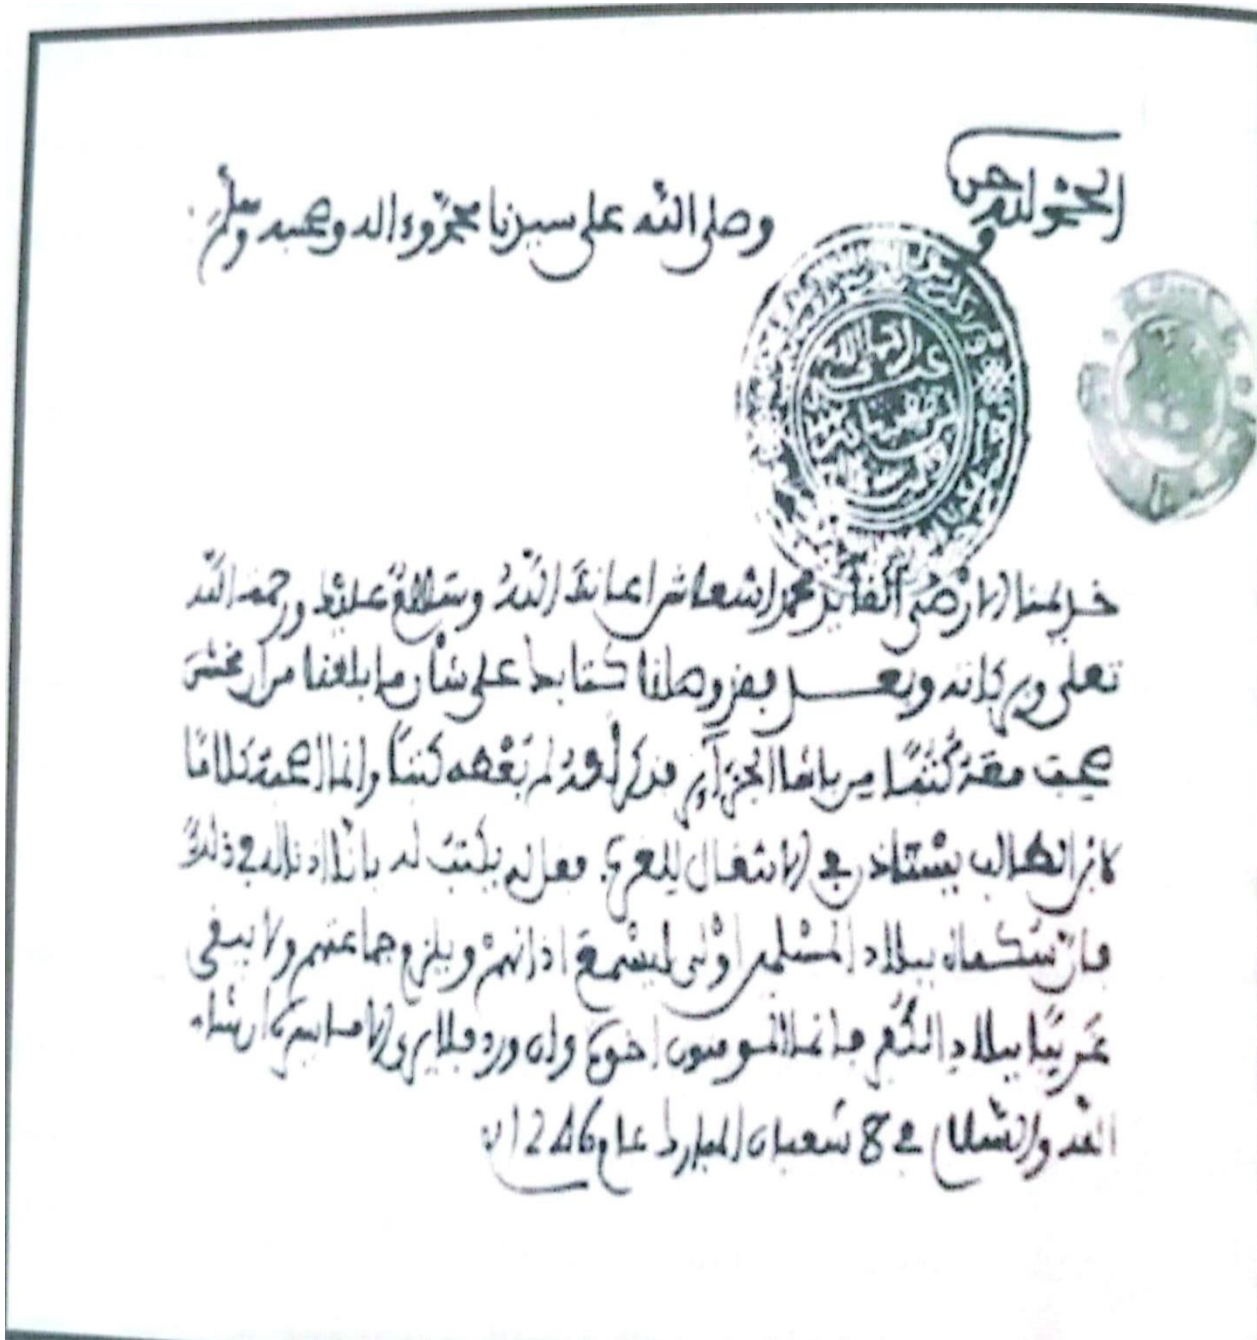 الحمد لله وحده
وصلى الله على سيدنا محمد وءاله وصحبه وسلم
خديمنا الارضى القائد محمد اشعاش اعانك الله وسلام عليك ورحمة الله
تعلى وبركاته وبعد فقد وصلنا كتابك على شأن ما بلغنا من ان
صحبت معه كتبا من باشا الجزائر فذكر أنه لم تصحبه كتبا وانما اصحبه كلاما
لابن الطالب يستاذن في الانتقال للغرب فعل له يكتب له بانا اذنا له في ذلك
فان سكناه ببلاد المسلمين أولى ليسمع اذانهم ويلزم جماعتهم ولا يبقى
غريبا ببلاد الكفر فانما المومنون اخوة وان ورد فلا يرى الا ما يسره ان شاء
الله والسلام في 8 شعبان المبارك عام 1246